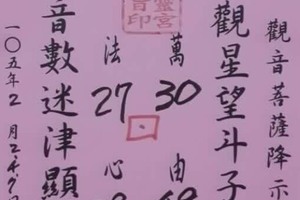 觀音菩薩降示
觀星望斗子
萬 30 由
法 27 心
音數迷津顯
一〇五年2月2